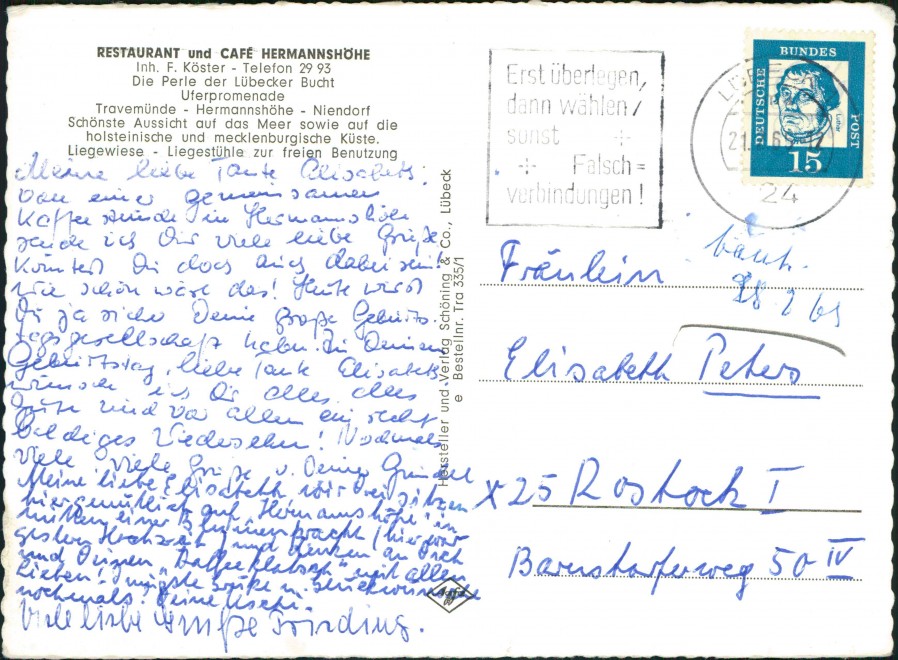 RESTAURANT und CAFÉ HERMANNSHÖHE
Inh. F. Köster - Telefon 29 93
Die Perle der Lübecker Bucht
Uferpromenade
Travemünde - Hermannshöhe - Niendorf
Schönste Aussicht auf das Meer sowie auf die
holsteinische und mecklenburgische Küste.
Liegewiese - Liegestühle zur freien Benutzung
Meine liebe Tante Elisabeth!
Von einer gemeinsamen
Kaffeestunde in Hermannshöhe
sende ich Dir viele liebe Grüße
Könntest Du doch auch dabei sein!
Wie schön wäre das! Heute wirst
Du ja sicher Deine große Geburts-
tagsgesellschaft haben. Zu Deinem
Geburtstag, liebe Tante Elisabeth
wünsche ich Dir alles, alles
Gute und vor allem ein recht
baldiges Wiedersehen! Nochmals
viele viele Grüße v. Deiner
Meine liebe Elisabeth, wir sitzen
hier gemütlich auf "Hermannshöhe" in
mitten einer Blumenpracht (hier war
gestern Hochzeit) und denken an Dich
und Deinen "Kaffeeklatsch" mit allen
Lieben!
nochmals! Deine
Viele liebe Grüße
Hersteller und Verlag Schöning & Co., Lübeck
e Bestellnr. Tra 335/1
Agfa
Erst überlegen,
dann wählen
sonst
Falsch=
verbindungen!
LÜBECK
21.
24
DEUTSCHE BUNDESPOST
Luther
15
28 2 65
Fräulein
Elisabeth Peters
x 25 Rostock I
Barnstorferweg 50 IV